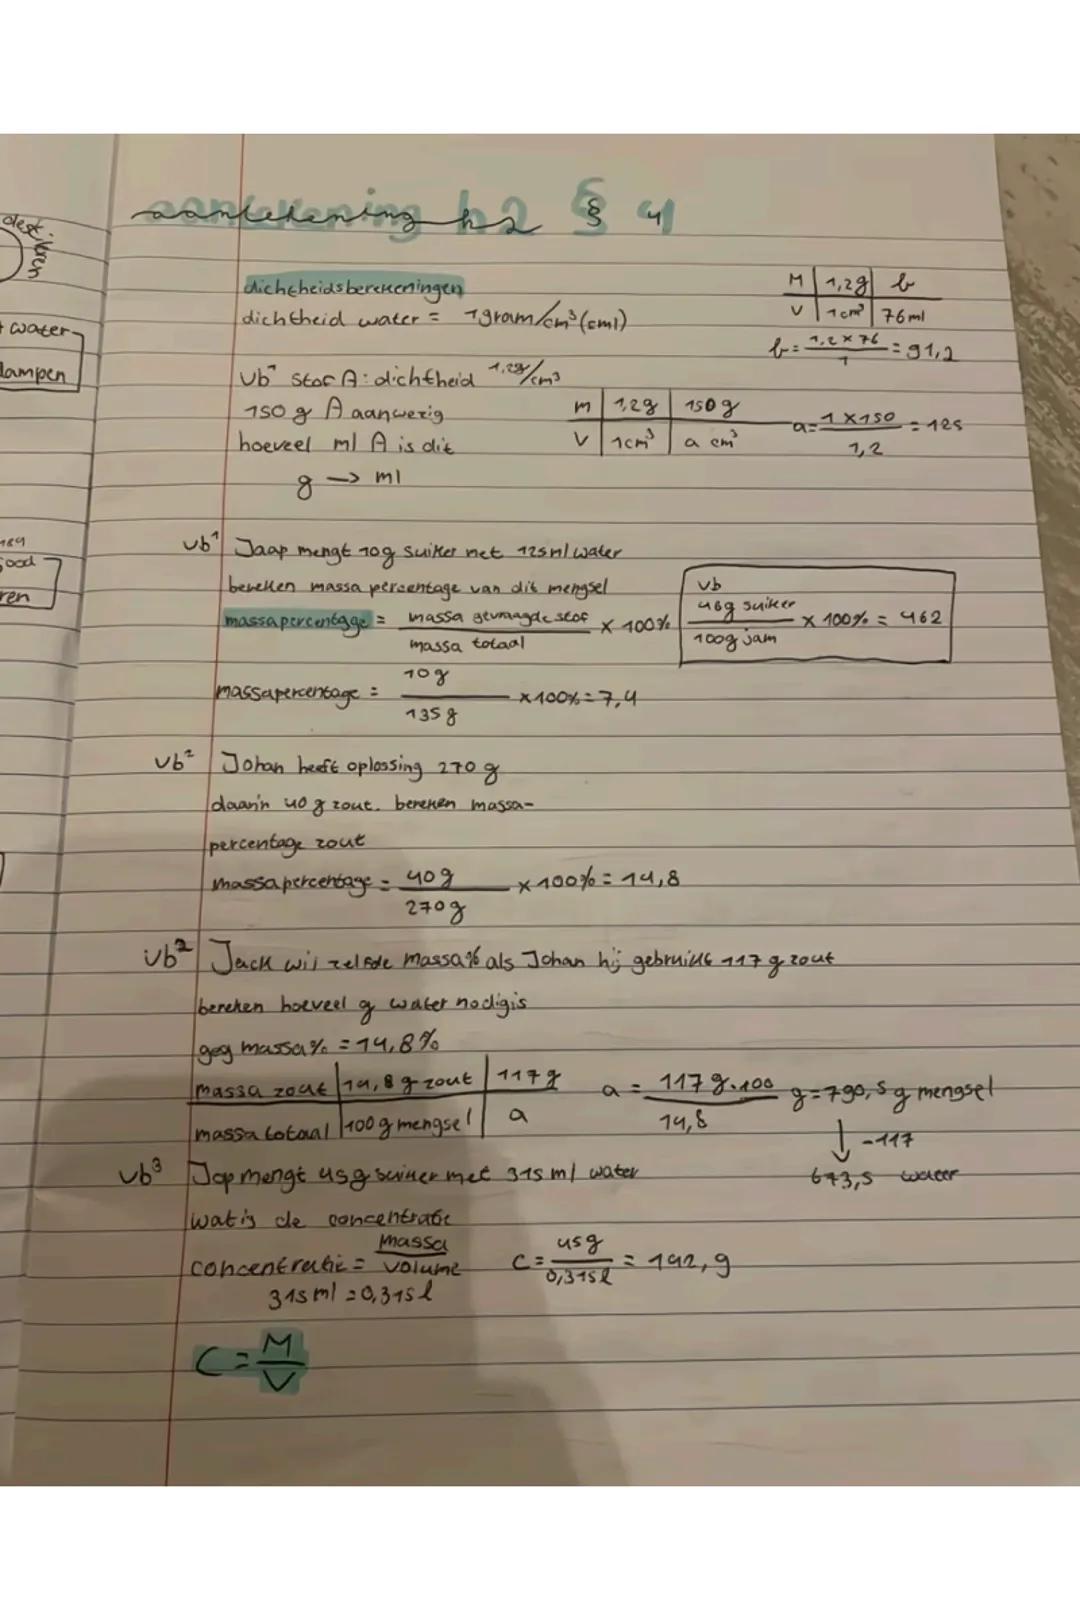 aantekening h2 § 4
dichtheidsberekeningen
dichtheid water = 1 gram/cm³ (ml)
M | 1,2g | b
V | 1cm³ | 76ml
b = 1,2 x 76 / 1 = 91,2
vb¹ stof A: dichtheid 1,2g/cm³
150 g A aanwezig
hoeveel ml A is dit
g → ml
m | 1,2g | 150g
V | 1cm³ | a cm³
a = 1 x 150 / 1,2 = 125
vb¹ Jaap mengt 10g suiker met 125ml water
bereken massa percentage van dit mengsel
massapercentage = massa gevraagde stof / massa totaal x 100%
vb
46g suiker / 100g jam x 100% = 462
massapercentage = 10g / 135g x 100% = 7,4
vb² Johan heeft oplossing 270 g
daarin 40 g zout. bereken massa-
percentage zout
massapercentage = 40g / 270g x 100% = 14,8
vb² Jack wil zelfde massa% als Johan hij gebruikt 117 g zout
bereken hoeveel g water nodig is
geg massa% = 14,8%
massa zout | 14,8 g zout | 117g
massa totaal | 100g mengsel | a
a = 117 g . 100 / 14,8 g = 790,5 g mengsel
↓ -117
673,5 water
vb³ Jap mengt 45g suiker met 315 ml water
wat is de concentratie
concentratie = massa / volume
C = 45g / 0,315l = 142, g
315 ml = 0,315 l
C = M / V
destilleren
water
dampen